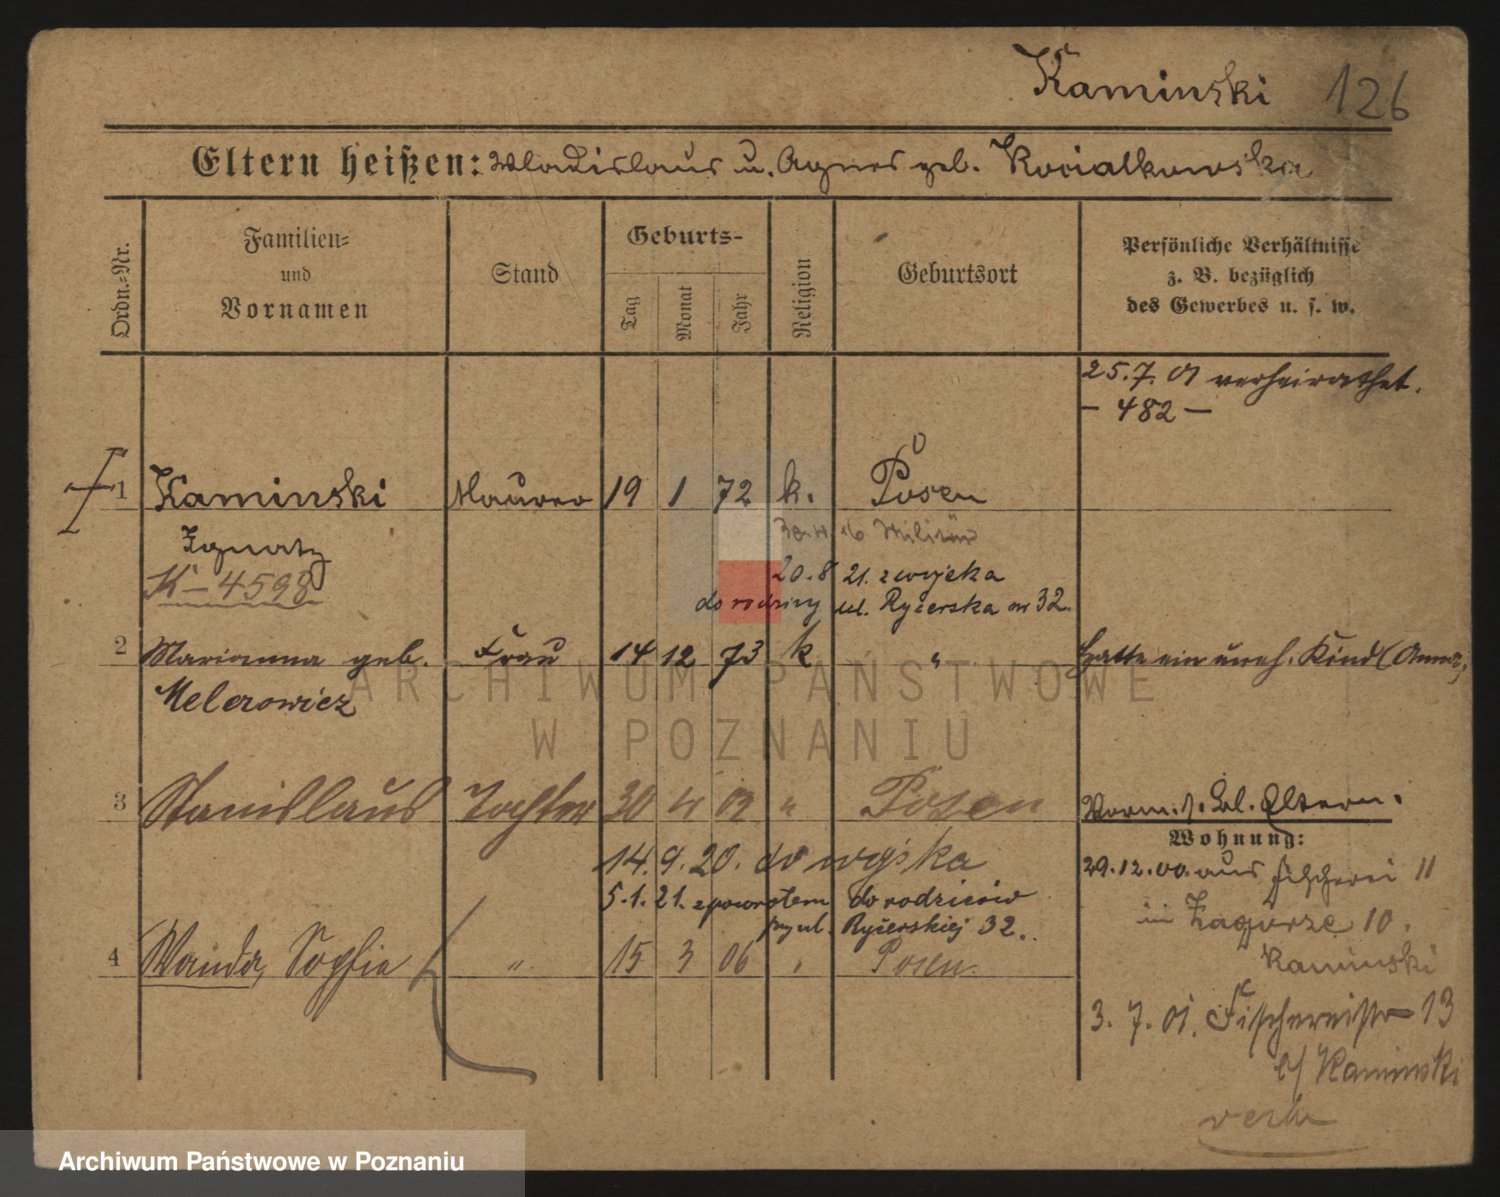 Kaminski 126
Eltern heißen: Wladislaus u. Agnes geb. Kocialkowska
Ordn.-Nr.
Familien-
und
Vornamen
Stand
Geburts-
Tag
Monat
Jahr
Religion
Geburtsort
Persönliche Verhältnisse
z. B. bezüglich
des Gewerbes u. s. w.
25.7.01 verheirathet.
– 482 –
1 Kaminski Maurer 19 1 72 k. Posen
Ignatz
K – 4598
16 Militär
20.8 21. z wojska
do rodziny ul. Ryćerska nr 32.
2 Marianna geb. Frau 14 12 73 k "
Hatte ein uneh. Kind (Anna)
Melerowicz
3 Stanislaus Tochter 30 4 02 " Posen
Vorm. s. Bl. Eltern.
Wohnung:
14.9.20. do wojska
5.1.21. z powrotem do rodziców
przy ul. Ryćerskiej 32.
4 Wanda, Sophie " 15 3 06 " Posen
29.12.00. aus Fischerei 11
in Zagorze 10.
Kaminski
3.7.01. Fischereistr 13
b/ Kaminski
verh
ARCHIWUM PAŃSTWOWE
W POZNANIU
Archiwum Państwowe w Poznaniu